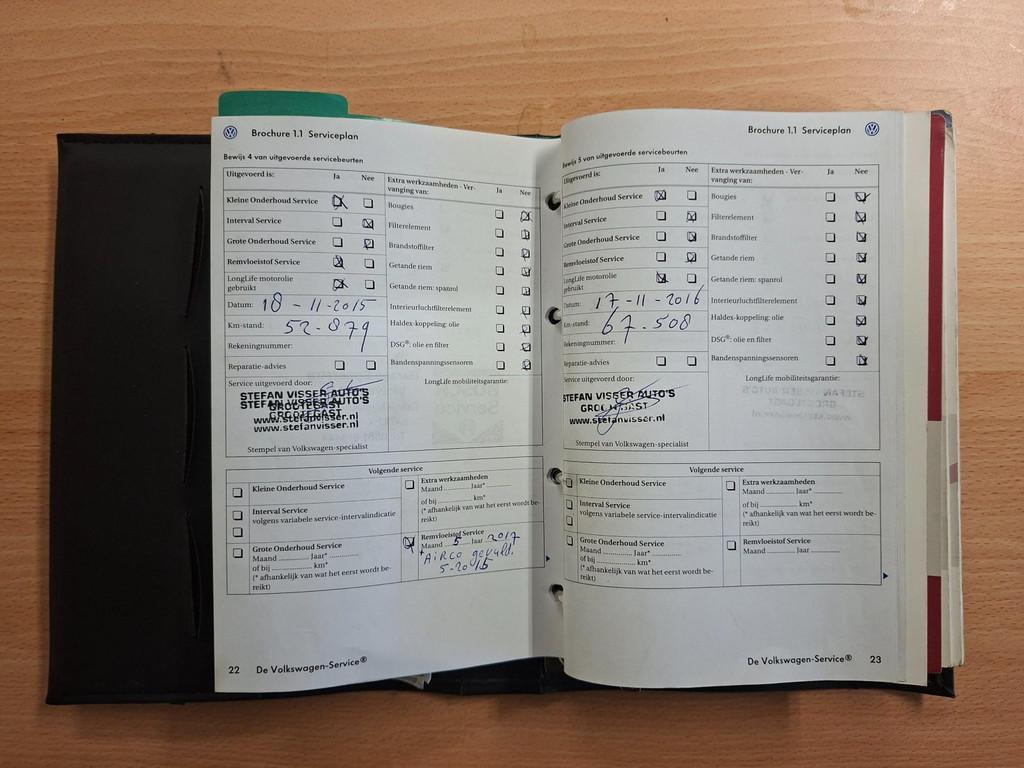 Brochure 1.1 Serviceplan
Bewijs 4 van uitgevoerde servicebeurten
Uitgevoerd is: Ja Nee
Kleine Onderhoud Service
Interval Service
Grote Onderhoud Service
Remvloeistof Service
LongLife motorolie
gebruikt
Datum: 18-11-2015
Km-stand: 52.879
Rekeningnummer:
Reparatie-advies
Service uitgevoerd door:
STEFAN VISSER AUTO'S
STEFAN VISSER AUTO'S
GROOTEGAST
GROOTEGAST
www.stefanvisser.nl
www.stefanvisser.nl
Stempel van Volkswagen-specialist
Extra werkzaamheden - Ver-
vanging van: Ja Nee
Bougies
Filterelement
Brandstoffilter
Getande riem
Getande riem: spanrol
Interieurluchtfilterelement
Haldex-koppeling: olie
DSG®: olie en filter
Bandenspanningssensoren
LongLife mobiliteitsgarantie:
Volgende service
Kleine Onderhoud Service
Interval Service
volgens variabele service-intervalindicatie
Grote Onderhoud Service
Maand ............ Jaar* ............
of bij ............ km*
(* afhankelijk van wat het eerst wordt be-
reikt)
Extra werkzaamheden
Maand ............ Jaar* ............
of bij ............ km*
(* afhankelijk van wat het eerst wordt be-
reikt)
Remvloeistof Service
Maand 5 Jaar 2017
*AiRCO gevuld.
5-2015
22 De Volkswagen-Service®
Brochure 1.1 Serviceplan
Bewijs 5 van uitgevoerde servicebeurten
Uitgevoerd is: Ja Nee
Kleine Onderhoud Service
Interval Service
Grote Onderhoud Service
Remvloeistof Service
LongLife motorolie
gebruikt
Datum: 17-11-2016
Km-stand: 67.508
Rekeningnummer:
Reparatie-advies
Service uitgevoerd door:
STEFAN VISSER AUTO'S
GROOTEGAST
www.stefanvisser.nl
Stempel van Volkswagen-specialist
Extra werkzaamheden - Ver-
vanging van: Ja Nee
Bougies
Filterelement
Brandstoffilter
Getande riem
Getande riem: spanrol
Interieurluchtfilterelement
Haldex-koppeling: olie
DSG®: olie en filter
Bandenspanningssensoren
LongLife mobiliteitsgarantie:
Volgende service
Kleine Onderhoud Service
Interval Service
volgens variabele service-intervalindicatie
Grote Onderhoud Service
Maand ............ Jaar* ............
of bij ............ km*
(* afhankelijk van wat het eerst wordt be-
reikt)
Extra werkzaamheden
Maand ............ Jaar* ............
of bij ............ km*
(* afhankelijk van wat het eerst wordt be-
reikt)
Remvloeistof Service
Maand ............ Jaar ............
De Volkswagen-Service® 23